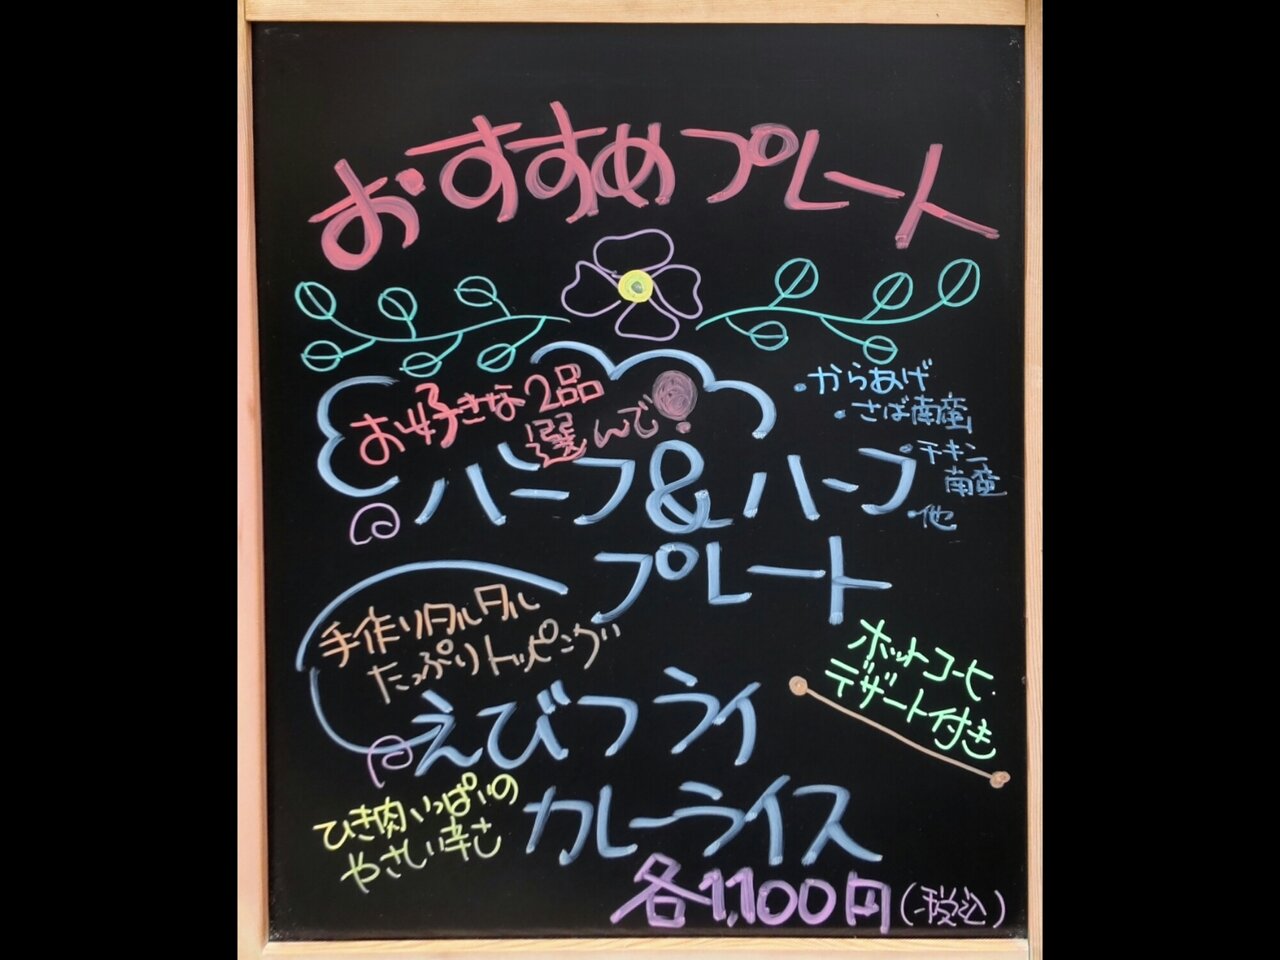 おすすめプレート
お好きな2品
選んで!
・からあげ
・さば南蛮
・チキン
南蛮
・他
ハーフ&ハーフ
プレート
手作りタルタル
たっぷりトッピング
ホットコーヒー
デザート付き
えびフライ
ひき肉いっぱいの
やさしい辛さ
カレーライス
各1,100円(税込)